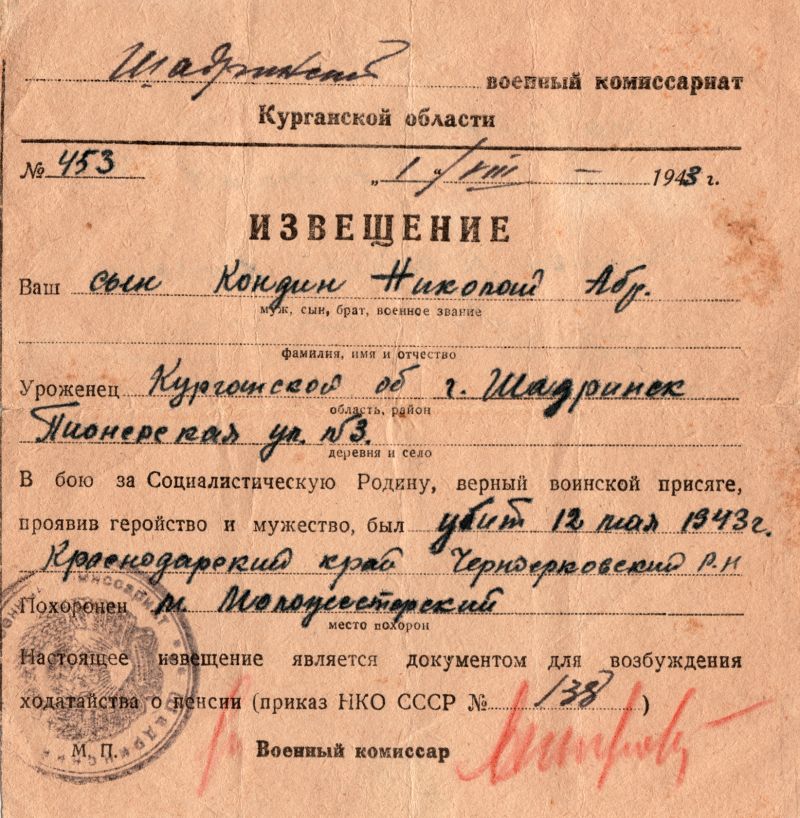 Шадринский военный комиссариат
Курганской области
№ 453 „ 1 “ VIII – 1943 г.
ИЗВЕЩЕНИЕ
Ваш сын Кондин Николай Абр.
муж, сын, брат, военное звание
фамилия, имя и отчество
Уроженец Курганской об г. Шадринск
область, район
Пионерская ул. №3.
деревня и село
В бою за Социалистическую Родину, верный воинской присяге,
проявив геройство и мужество, был убит 12 мая 1943 г.
Краснодарский край Р-Н
Похоронен м.
место похорон
Настоящее извещение является документом для возбуждения
ходатайства о пенсии (приказ НКО СССР № 138)
М. П. Военный комиссар